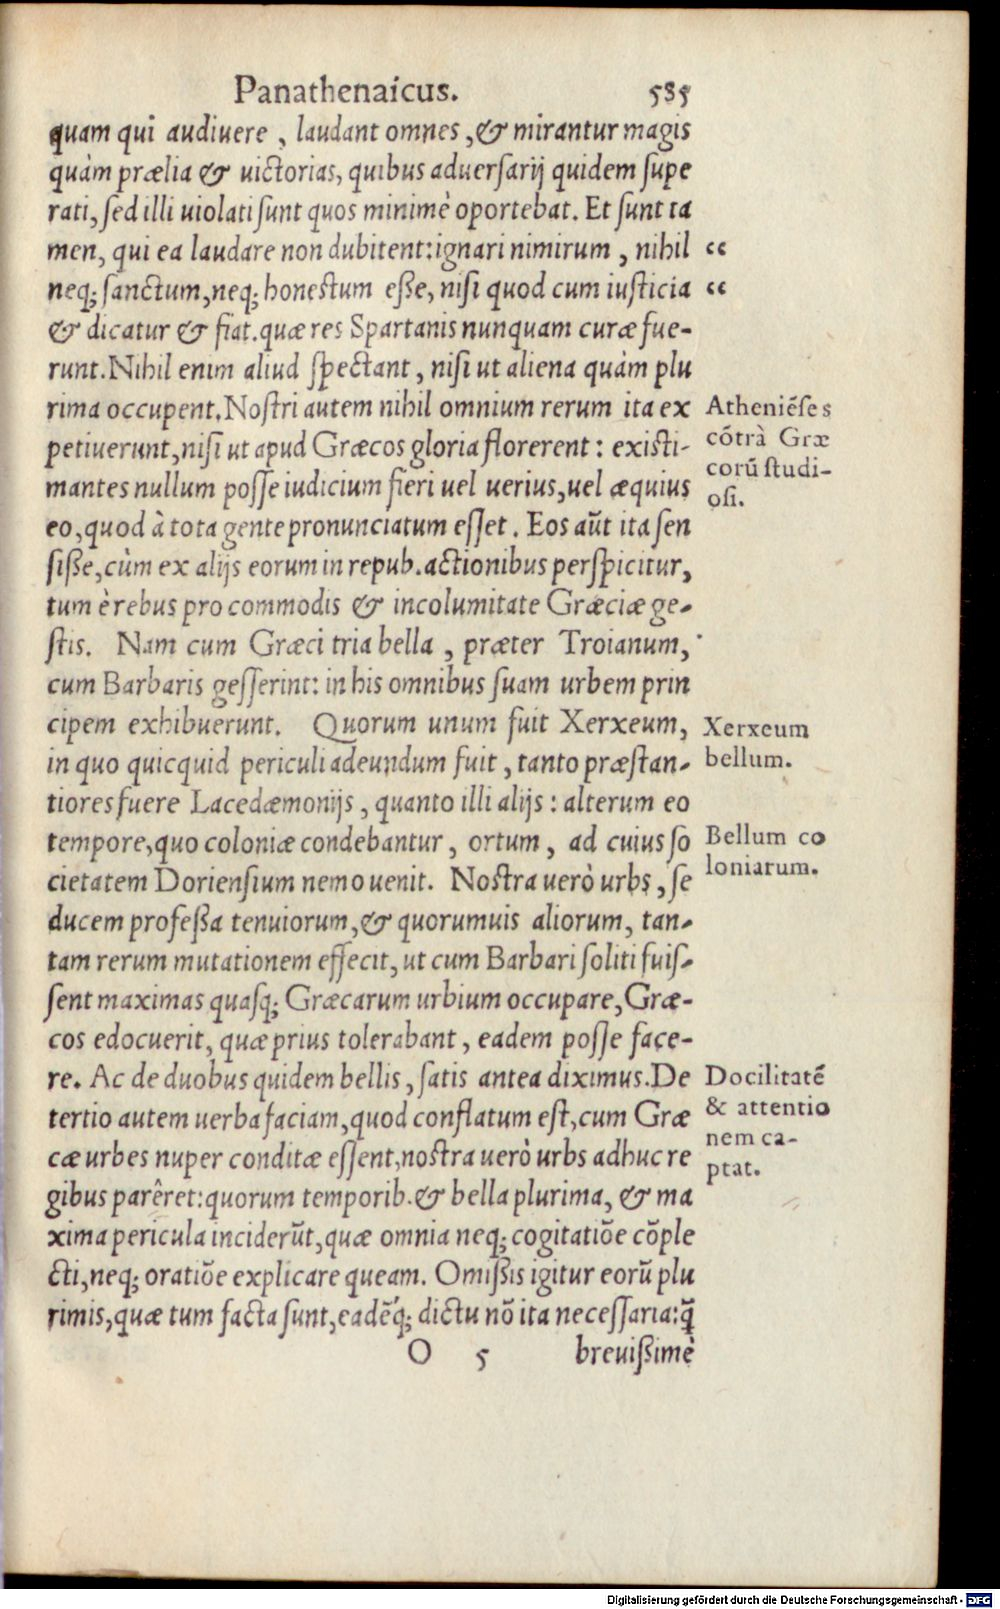 Panathenaicus. 585
quam qui audiuere, laudant omnes, & mirantur magis
quàm prælia & uictorias, quibus aduersarij quidem supe
rati, sed illi uiolati sunt quos minimè oportebat. Et sunt ta
men, qui ea laudare non dubitent: ignari nimirum, nihil “
neq; sanctum, neq; honestum eße, nisi quod cum iusticia “
& dicatur & fiat. quæ res Spartanis nunquam curæ fue-
runt. Nihil enim aliud spectant, nisi ut aliena quàm plu
rima occupent. Nostri autem nihil omnium rerum ita ex
petiuerunt, nisi ut apud Græcos gloria florerent: existi-
mantes nullum posse iudicium fieri uel uerius, uel æquius
eo, quod à tota gente pronunciatum esset. Eos aūt ita sen
siße, cùm ex alijs eorum in repub. actionibus perspicitur,
tum è rebus pro commodis & incolumitate Græciæ ge-
stis. Nam cum Græci tria bella, præter Troianum,
cum Barbaris gesserint: in his omnibus suam urbem prin
cipem exhibuerunt. Quorum unum fuit Xerxeum,
in quo quicquid periculi adeundum fuit, tanto præstan-
tiores fuere Lacedæmonijs, quanto illi alijs: alterum eo
tempore, quo coloniæ condebantur, ortum, ad cuius so
cietatem Doriensium nemo uenit. Nostra uerò urbs, se
ducem profeßa tenuiorum, & quorumuis aliorum, tan-
tam rerum mutationem effecit, ut cum Barbari soliti fuis-
sent maximas quasq; Græcarum urbium occupare, Græ-
cos edocuerit, quæ prius tolerabant, eadem posse face-
re. Ac de duobus quidem bellis, satis antea diximus. De
tertio autem uerba faciam, quod conflatum est, cum Græ
cæ urbes nuper conditæ essent, nostra uerò urbs adhuc re
gibus parêret: quorum temporib. & bella plurima, & ma
xima pericula inciderūt, quæ omnia neq; cogitatiōe cōple
cti, neq; oratiōe explicare queam. Omißis igitur eorū plu
rimis, quæ tum facta sunt, eadēq; dictu nō ita necessaria: q̃
O 5 breuißimè
Atheniēses
cōtrà Græ
corū studi-
osi.
Xerxeum
bellum.
Bellum co
loniarum.
Docilitatē
& attentio
nem ca-
ptat.
Digitalisierung gefördert durch die Deutsche Forschungsgemeinschaft - DFG